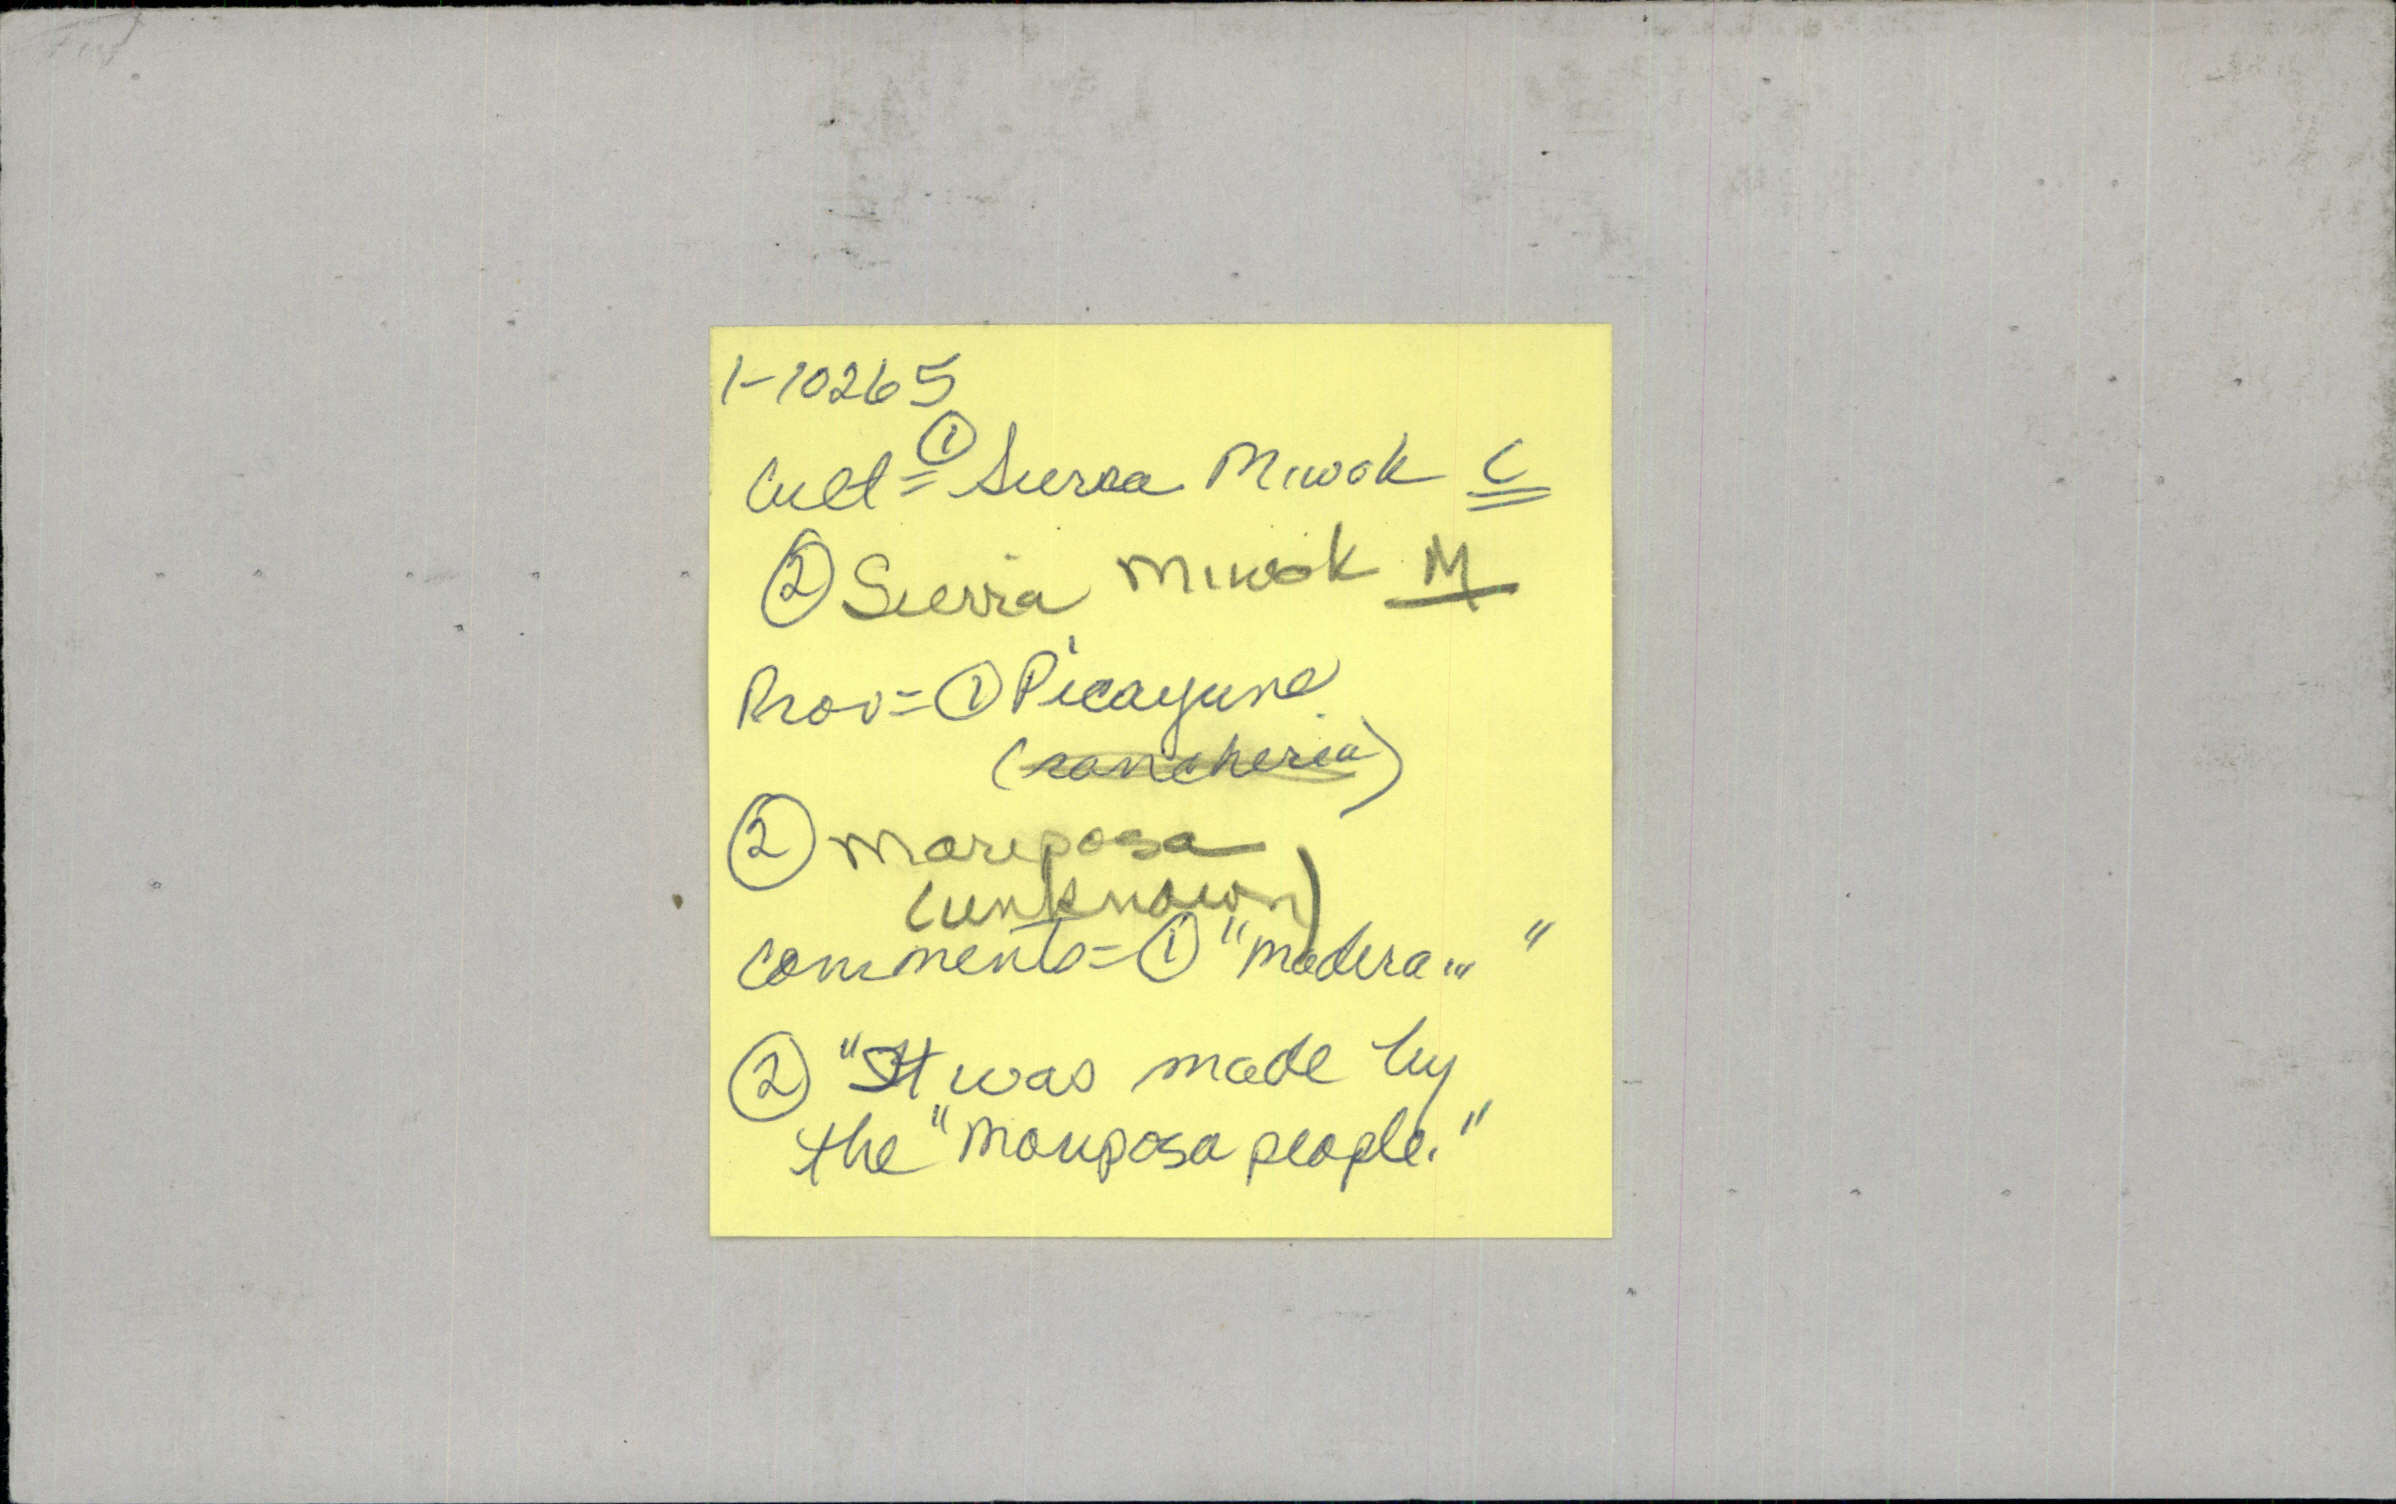 1-10265
Cult = ① Sierra Miwok C
② Sierra Miwok M
Prov = ① Picayune
(rancheria)
② Mariposa
(unknown)
Comments = ① "Madera... "
② "It was made by
the "Mariposa people."